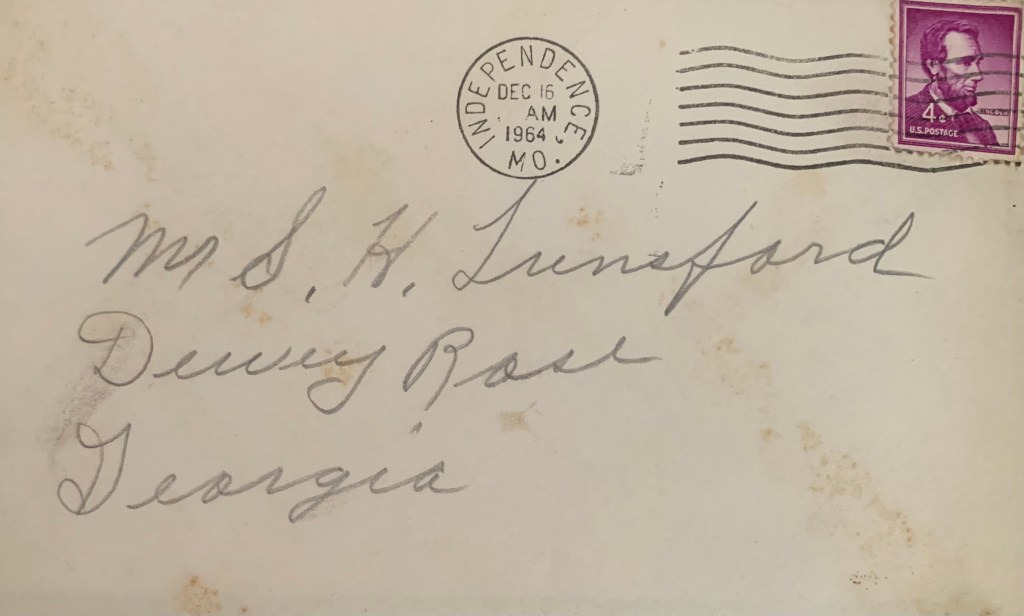 INDEPENDENCE, MO.
DEC 16
AM
1964
4¢
U.S. POSTAGE
Mr S. H. Lunsford
Dewey Rose
Georgia